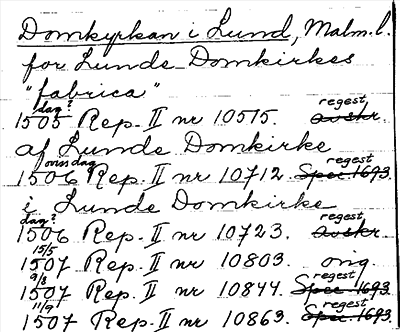 Domkyrkan i Lund, Malm. l.
for Lunde Domkirkes
"fabrica"
dag? regest
1505 Rep. II nr 10515. avskr.
af Lunde Domkirke
onsdag regest
1506 Rep. II nr 10712. Spec. 1693.
i Lunde Domkirke
dag? regest
1506 Rep. II nr 10723. avskr.
15/5
1507 Rep. II nr 10803. orig.
9/8 regest
1507 Rep. II nr 10844. Spec. 1693
11/9 regest
1507 Rep. II nr 10863. Spec. 1693.